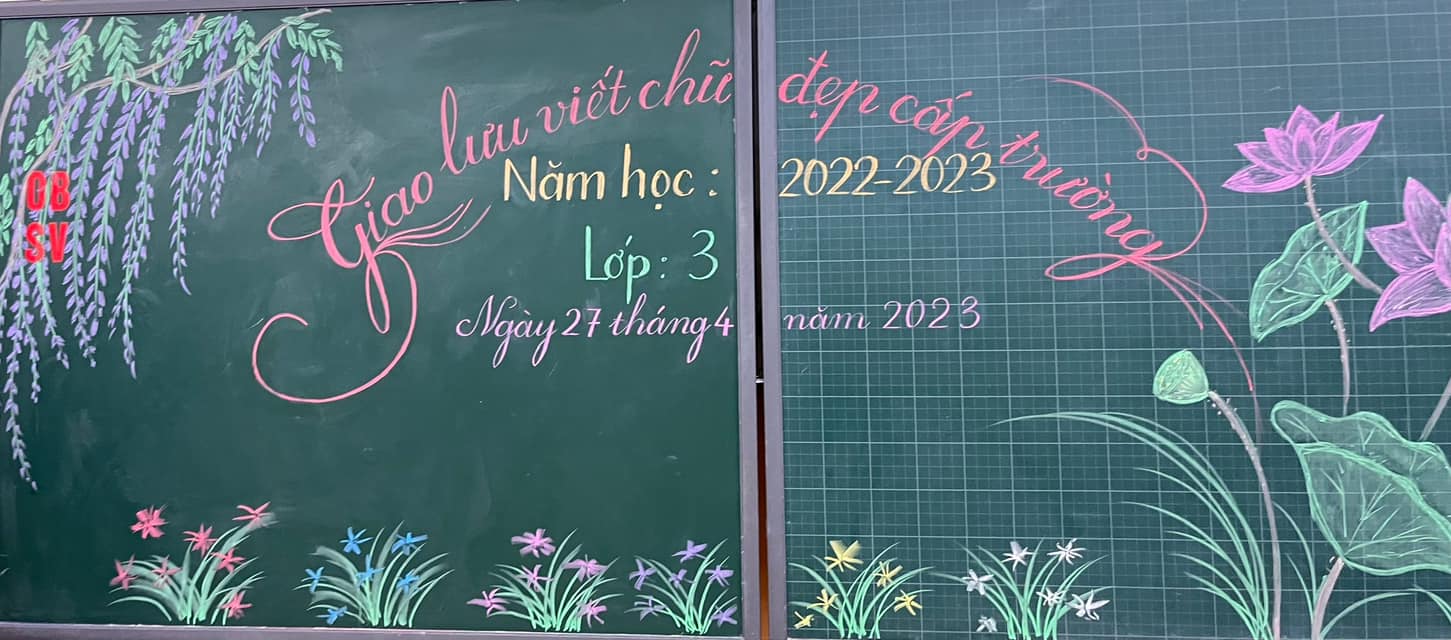 Giao lưu viết chữ đẹp cấp trường
Năm học: 2022-2023
Lớp: 3
Ngày 27 tháng 4 năm 2023
CB
SV